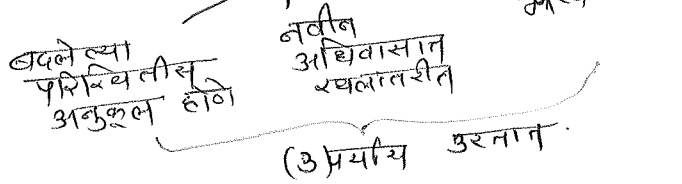 बदलेल्या
परिस्थितीस
अनुकूल होणे
नवीन
अधिवासात
स्थलांतरीत
(3) पर्याय उरतात.